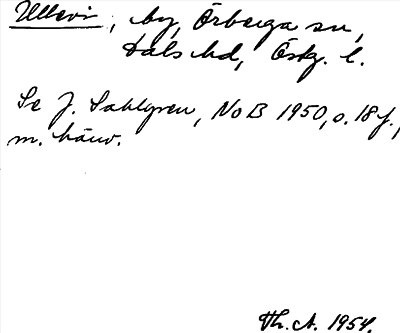 Ullevi, by, Örberga sn,
Dals hd, Östg. l.
Se J. Sahlgren, NoB 1950, s. 18 f.,
m. hänv.
Th. A. 1954.